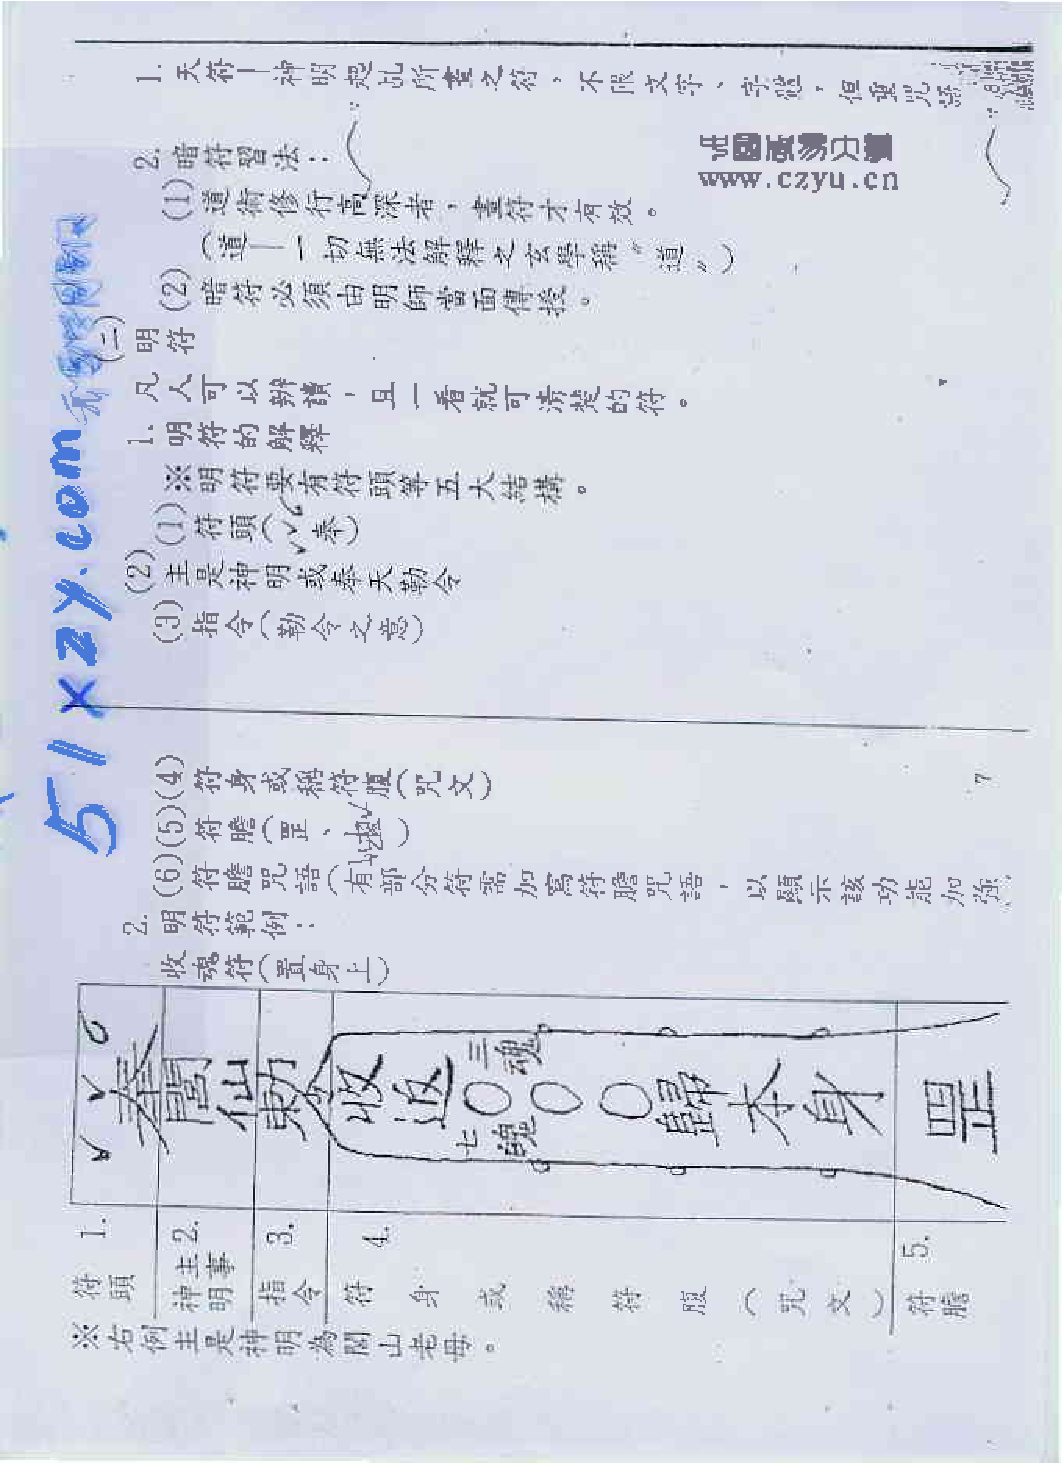 1. 天符—神明起乩所畫之符,不限文字、字態,但重咒
2. 暗符習法:
(1)道術修行高深者,畫符才有效。
(道—一切無法解釋之玄學稱“道”)
(2)暗符必須由明師當面傳授。
(二)明符
凡人可以辨讀,且一看就可清楚的符。
1. 明符的解釋
※明符要有符頭等五大結構。
(1)符頭(奉)
(2)主是神明或奉天勅令
(3)指令(勅令之意)
(4)符身或稱符腹(咒文)
(5)符膽(罡、)
(6)符膽咒語(有部分符需加寫符膽咒語,以顯示該功能加強
2. 明符範例:
收魂符(置身上)
奉
閭仙
勅令
收返三魂七魄歸本身
罡
1. 符頭
2. 主事神明
3. 指令
4. 符身或稱符腹(咒文)
5. 符膽
※右例主是神明為閭山老母。
7
www.czyu.cn
51xzy.com